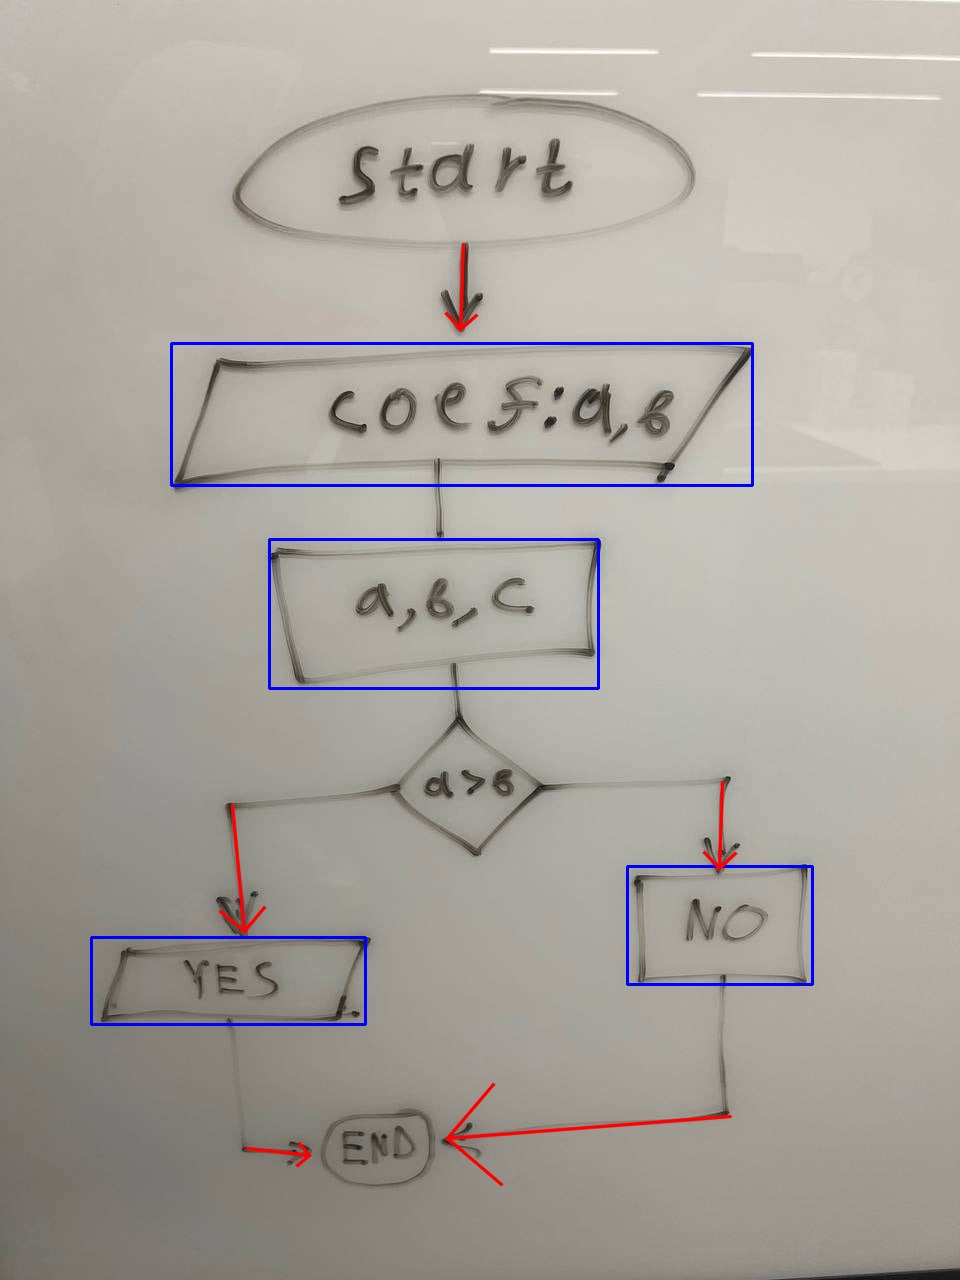 Start
coef:a,b
a,b,c
a>b
NO
YES
END